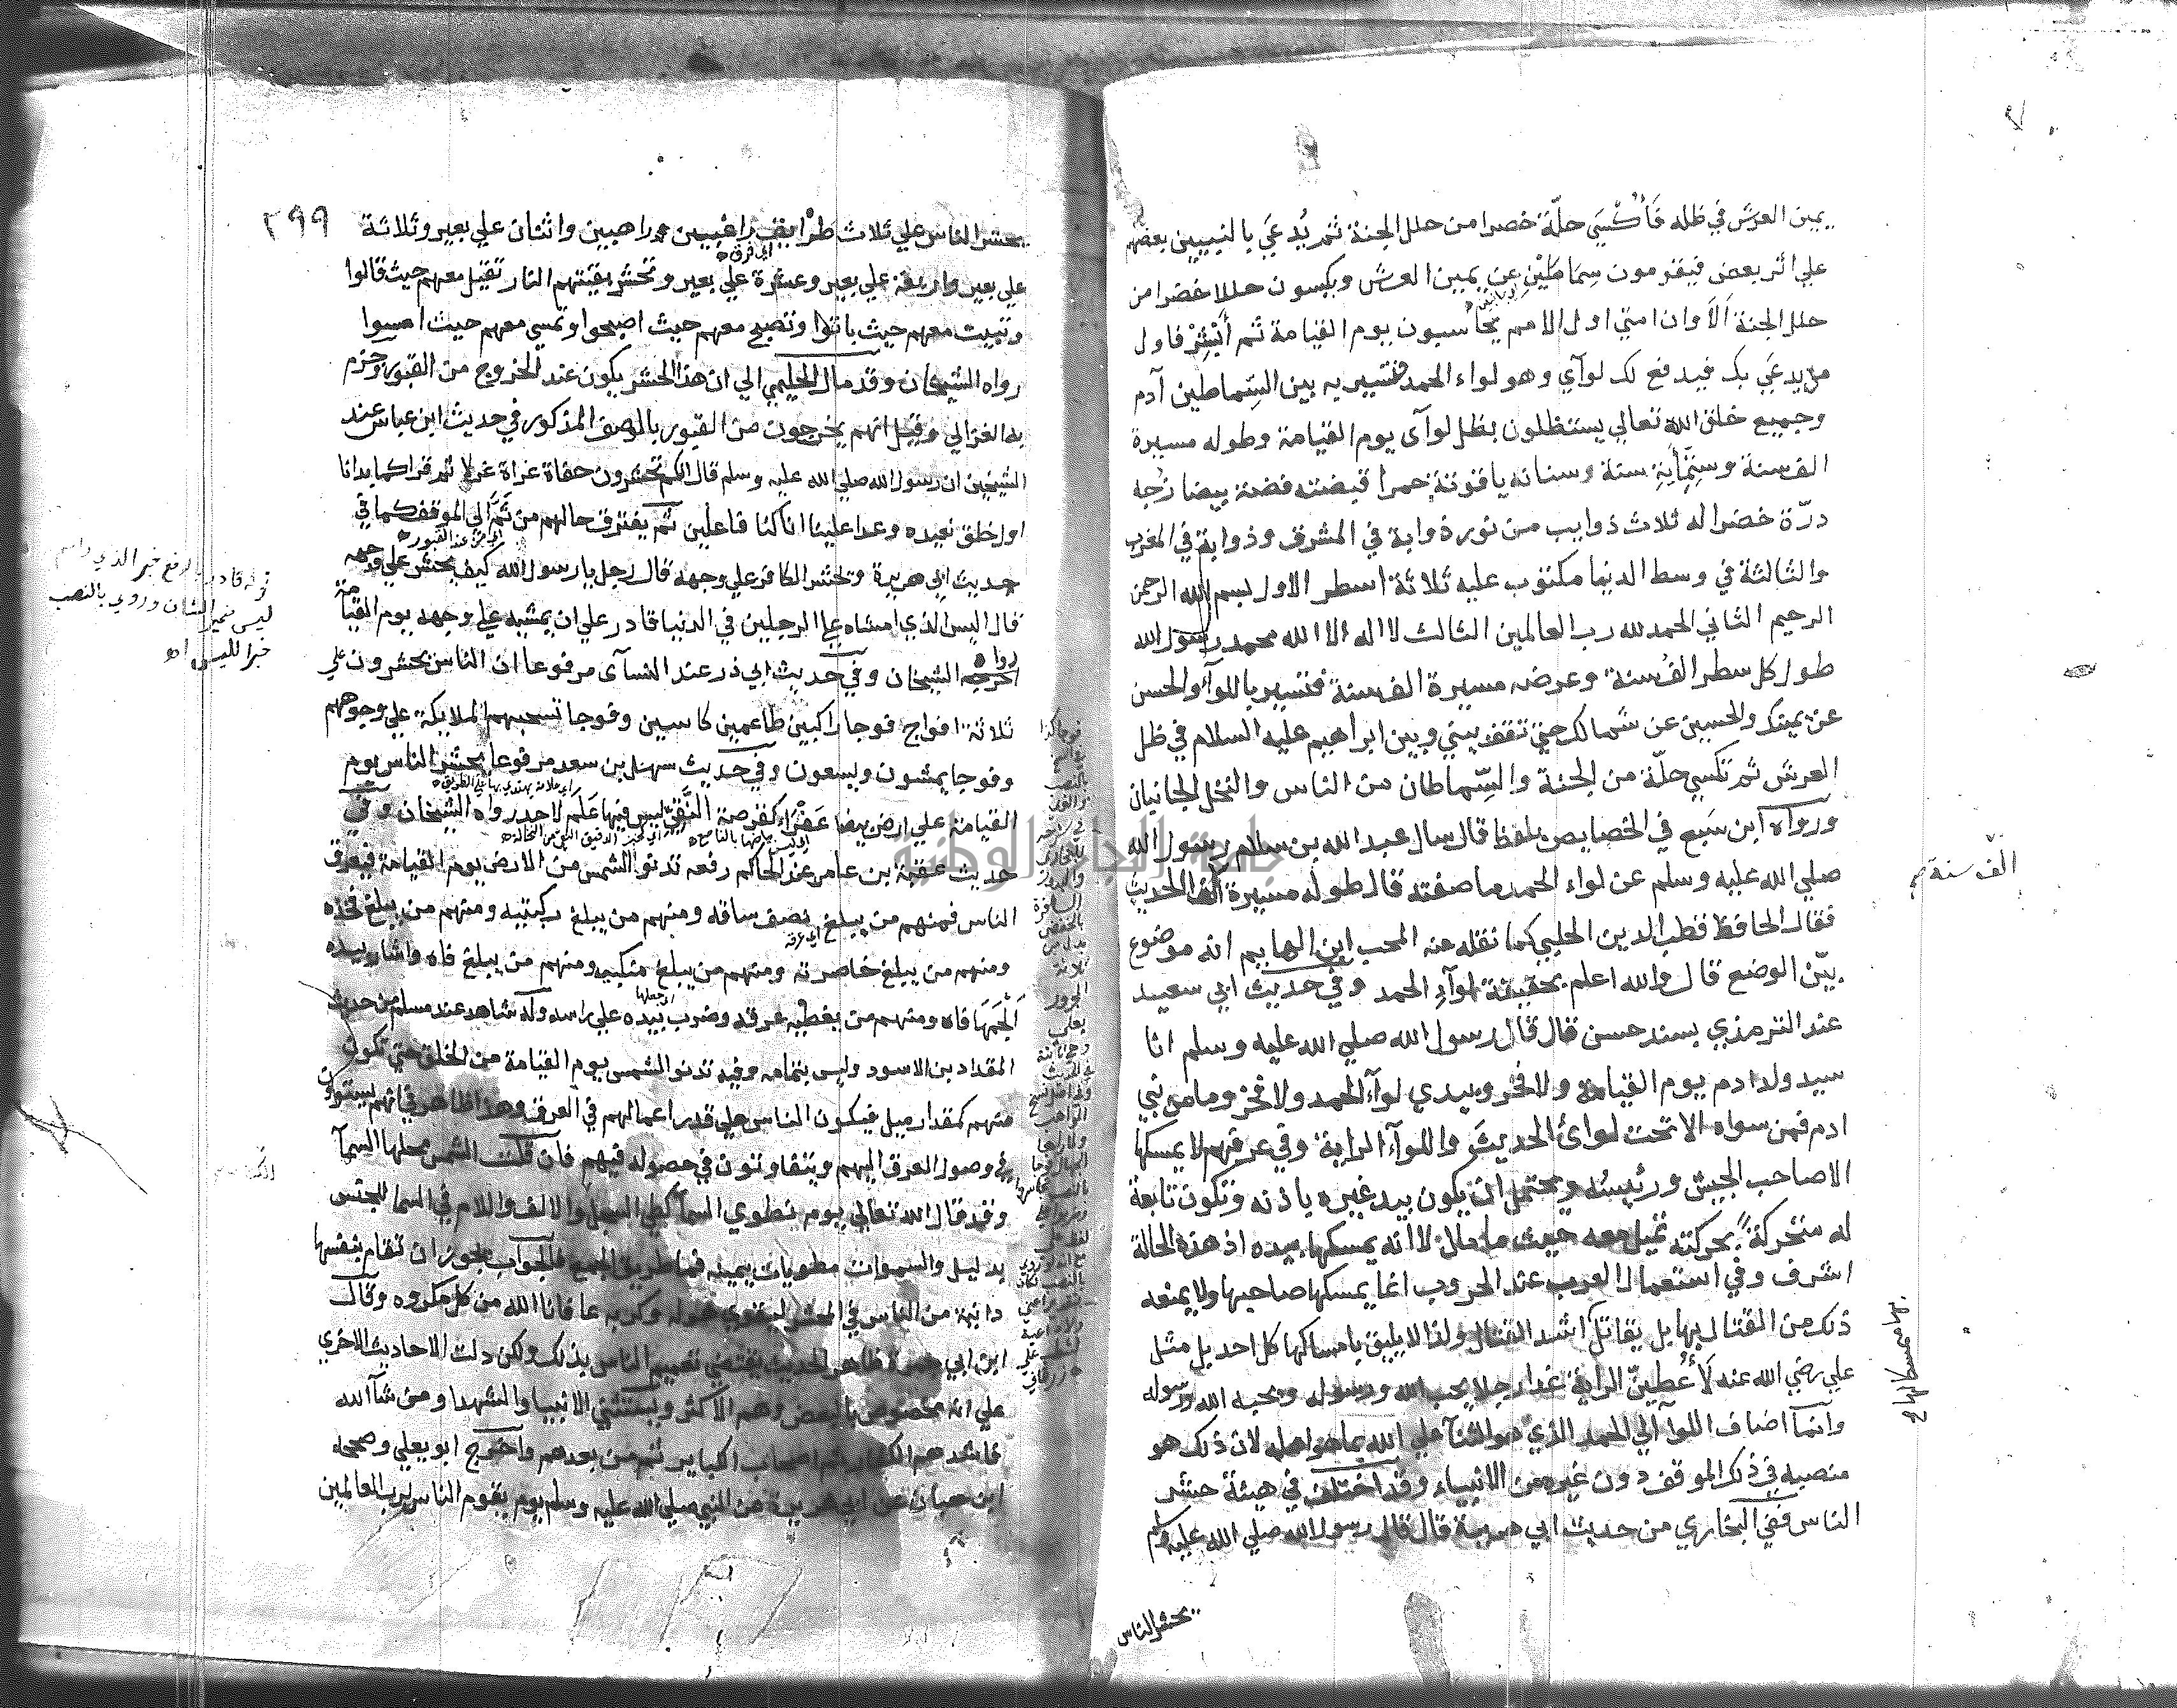 يمين العرش في ظله فَأُكْسَي حلّة خضرا من حلل الجنة ثم يُدعَي بالنبيين بعضهم
علي اثر بعض فيقومون سِمَاطَيْنِ عن يمين العرش ويكسون حللا خضرا من
حلل الجنة اَلَا وان امتي اول الامم يحاسبون يوم القيامة ثم أَبْشِرْ فاول
من يدعَي بك فيدفع لك لوآي وهو لواء الحمد فتسير به بين السِّماطين آدم
وجميع خلق الله تعالي يستظلون بظل لوآي يوم القيامة وطوله مسيرة
الف سنة وستّماية سنة وسنانه ياقوتة حمرا قبضته فضة بيضا زُجه
درّة خضرا له ثلاث ذوايب من نور ذوابة في المشرق وذوابة في المغرب
والثالثة في وسط الدنيا مكتوب عليه ثلاثة اسطر الاول بسم الله الرحمن
الرحيم الثاني الحمد لله رب العالمين الثالث لا اله الا الله محمد رسول الله
طول كل سطر الف سنة وعرضه مسيرة الف سنة فتسير باللوآء والحسن
عن يمينك والحسين عن شمالك حتي تقف بيني وبين ابراهيم عليه السلام في ظل
العرش ثم تكسي حلّة من الجنة والسِّماطان من الناس والنخل الجانبان
ورواه ابن سَبع في الخصايص بلفظ قال سال عبد الله بن سلام رسول الله
صلي الله عليه وسلم عن لواء الحمد ما صفته قال طوله مسيرة الحديث
الف سنة
فقال الحافظ قطب الدين الحلبي كما نقله عنه المحب ابن الهايم انه موضوع
بيّن الوضع قال والله اعلم بحقيقة لوآء الحمد وفي حديث ابي سعيد
عند الترمذي بسند حسن قال قال رسول الله صلي الله عليه وسلم انا
سيد ولد ادم يوم القيامة ولا فخر وبيدي لوآء الحمد ولا فخر وما من نبي
ادم فمن سواه الا تحت لوائ الحديث واللوآء الراية وفي عرفهم لا يمسكها
الا صاحب الجيش ورئيسه ويحتمل ان يكون بيد غيره باذنه وتكون تابعة
له متحركة بحركته تميل معه حيث ما مال لا انه يمسكها بيده اذ هذه الحالة
اشرف وفي استعمال العرب عند الحروب انما يمسكها صاحبها ولا يمنعه
ذلك من القتال بها بل يقاتل اشد القتال ولذا لا يليق بامساكها كل احد بل مثل
علي رضي الله عنه لَأُعْطِيَنّ الراية غدا رجلا يحب الله ورسوله ويحبه الله ورسوله
وانما اضاف اللوآ الي الحمد الذي هو الثنآ علي الله بما هو اهله لان ذلك هو
منصبه في ذلك الموقف دون غيره من الانبياء وقد اختلف في هيئة حشر
الناس ففي البخاري من حديث ابي هريرة قال قال رسول الله صلي الله عليه وسلم
يحشر الناس
٢٩٩
يحشر الناس علي ثلاث طرايق راغبين وراهبين واثنان علي بعير وثلاثة
اي فرق
علي بعير واربعة علي بعير وعشرة علي بعير وتحشر بقيتهم النار تقيل معهم حيث قالوا
وتبيت معهم حيث باتوا وتصبح معهم حيث اصبحوا وتمسي معهم حيث امسوا
رواه الشيخان وقد مال الحليمي الي ان هذا الحشر يكون عند الخروج من القبور وجزم
به الغزالي وقيل انهم يخرجون من القبور بالوصف المذكور في حديث ابن عباس عند
الشيخين ان رسول الله صلي الله عليه وسلم قال انكم تحشرون حفاة عراة غرلا ثم قرا كما بدانا
اول خلق نعيده وعدا علينا انا كنا فاعلين ثم يفترق حالهم من ثَمَّ الي الموقف كما في
اي من عند القبور
حديث ابي هريرة وتحشر الكافر علي وجهه قال رجل يا رسول الله كيف يحشر علي وجهه
قال اليس الذي امشاه علي الرجلين في الدنيا قادر علي ان يمشيه علي وجهه يوم القيامة
قوله قادر بالرفع خبر الذي واسم
ليس ضمير الشان وروي بالنصب
خبرا لليس اهـ
رواه
اخرجه الشيخان وفي حديث ابي ذر عند النسآي مرفوعا ان الناس يحشرون علي
ثلاثة افواج فوجا راكبين طاعمين كاسين وفوجا تسحبهم الملايكة علي وجوههم
وفوجا يمشون ويسعون وفي حديث سهل بن سعد مرفوعا يحشر الناس يوم
اي علامة يهتدي بها في الطريق
القيامة علي ارض بيضا عَفْرَاء كقرصة النَّقِيّ ليس فيها عَلَم لاحد رواه الشيخان وفي
حديث عقبة بن عامر عند الحاكم رفعه تدنو الشمس من الارض يوم القيامة فيعرق
الناس فمنهم من يبلغ نصف ساقه ومنهم من يبلغ ركبتيه ومنهم من يبلغ فخذه
اي عرقه
ومنهم من يبلغ خاصرته ومنهم من يبلغ منكبيه ومنهم من يبلغ فاه واشار بيده
اَلْجَمَهَا فاه ومنهم من يغطيه عرقه وضرب بيده علي راسه وله شاهد عند مسلم من حديث
المقداد بن الاسود وليس بتمامه وفيه تدنو الشمس يوم القيامة من الخلق حتي تكون
منهم كمقدار ميل فيكون الناس علي قدر اعمالهم في العرق وهذا ظاهر في انهم يستوون
في وصول العرق اليهم ويتفاوتون في حصوله فيهم فان قلت الشمس محلها السمآ
وقد قال الله تعالي يوم نطوي السمآ كطي السجل والالف واللام في السما للجنس
بدليل والسموات مطويات بيمينه فما طريق الجمع فالجواب يجوز ان تقام بنفسها
دانية من الناس في المحشر ليقوي هوله وكربه عافانا الله من كل مكروه وقال
ابن ابي جمرة ظاهر الحديث يقتضي تعميم الناس بذلك ولكن دلت الاحاديث الاخري
علي انه مخصوص بالبعض وهم الاكثر ويستثني الانبيا والشهدا ومن شآ الله
فاشدهم الكفار ثم اصحاب الكباير ثم من بعدهم واخرج ابو يعلي وصححه
ابن حبان عن ابي هريرة عن النبي صلي الله عليه وسلم يوم يقوم الناس لرب العالمين